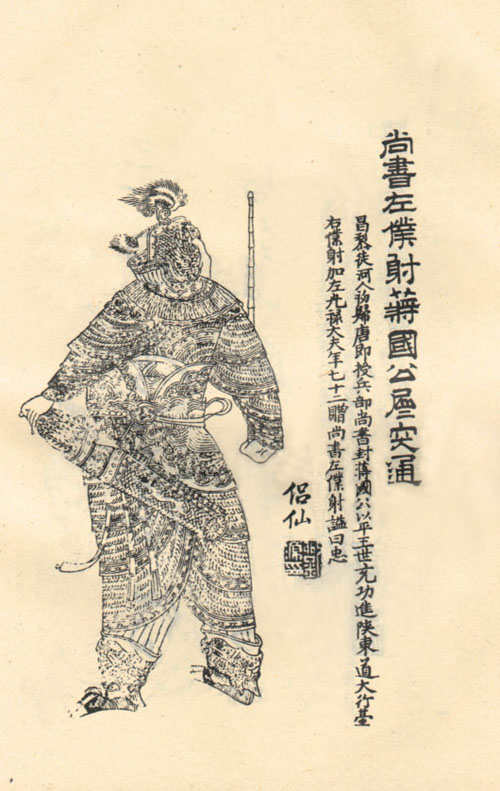 尚書左僕射蔣國公屈突通
昌黎徒河人初歸唐即授兵部尚書封蔣國公以平王世充功進陝東道大行臺
右僕射加左光祿大夫年七十二贈尚書左僕射謚曰忠
侶仙